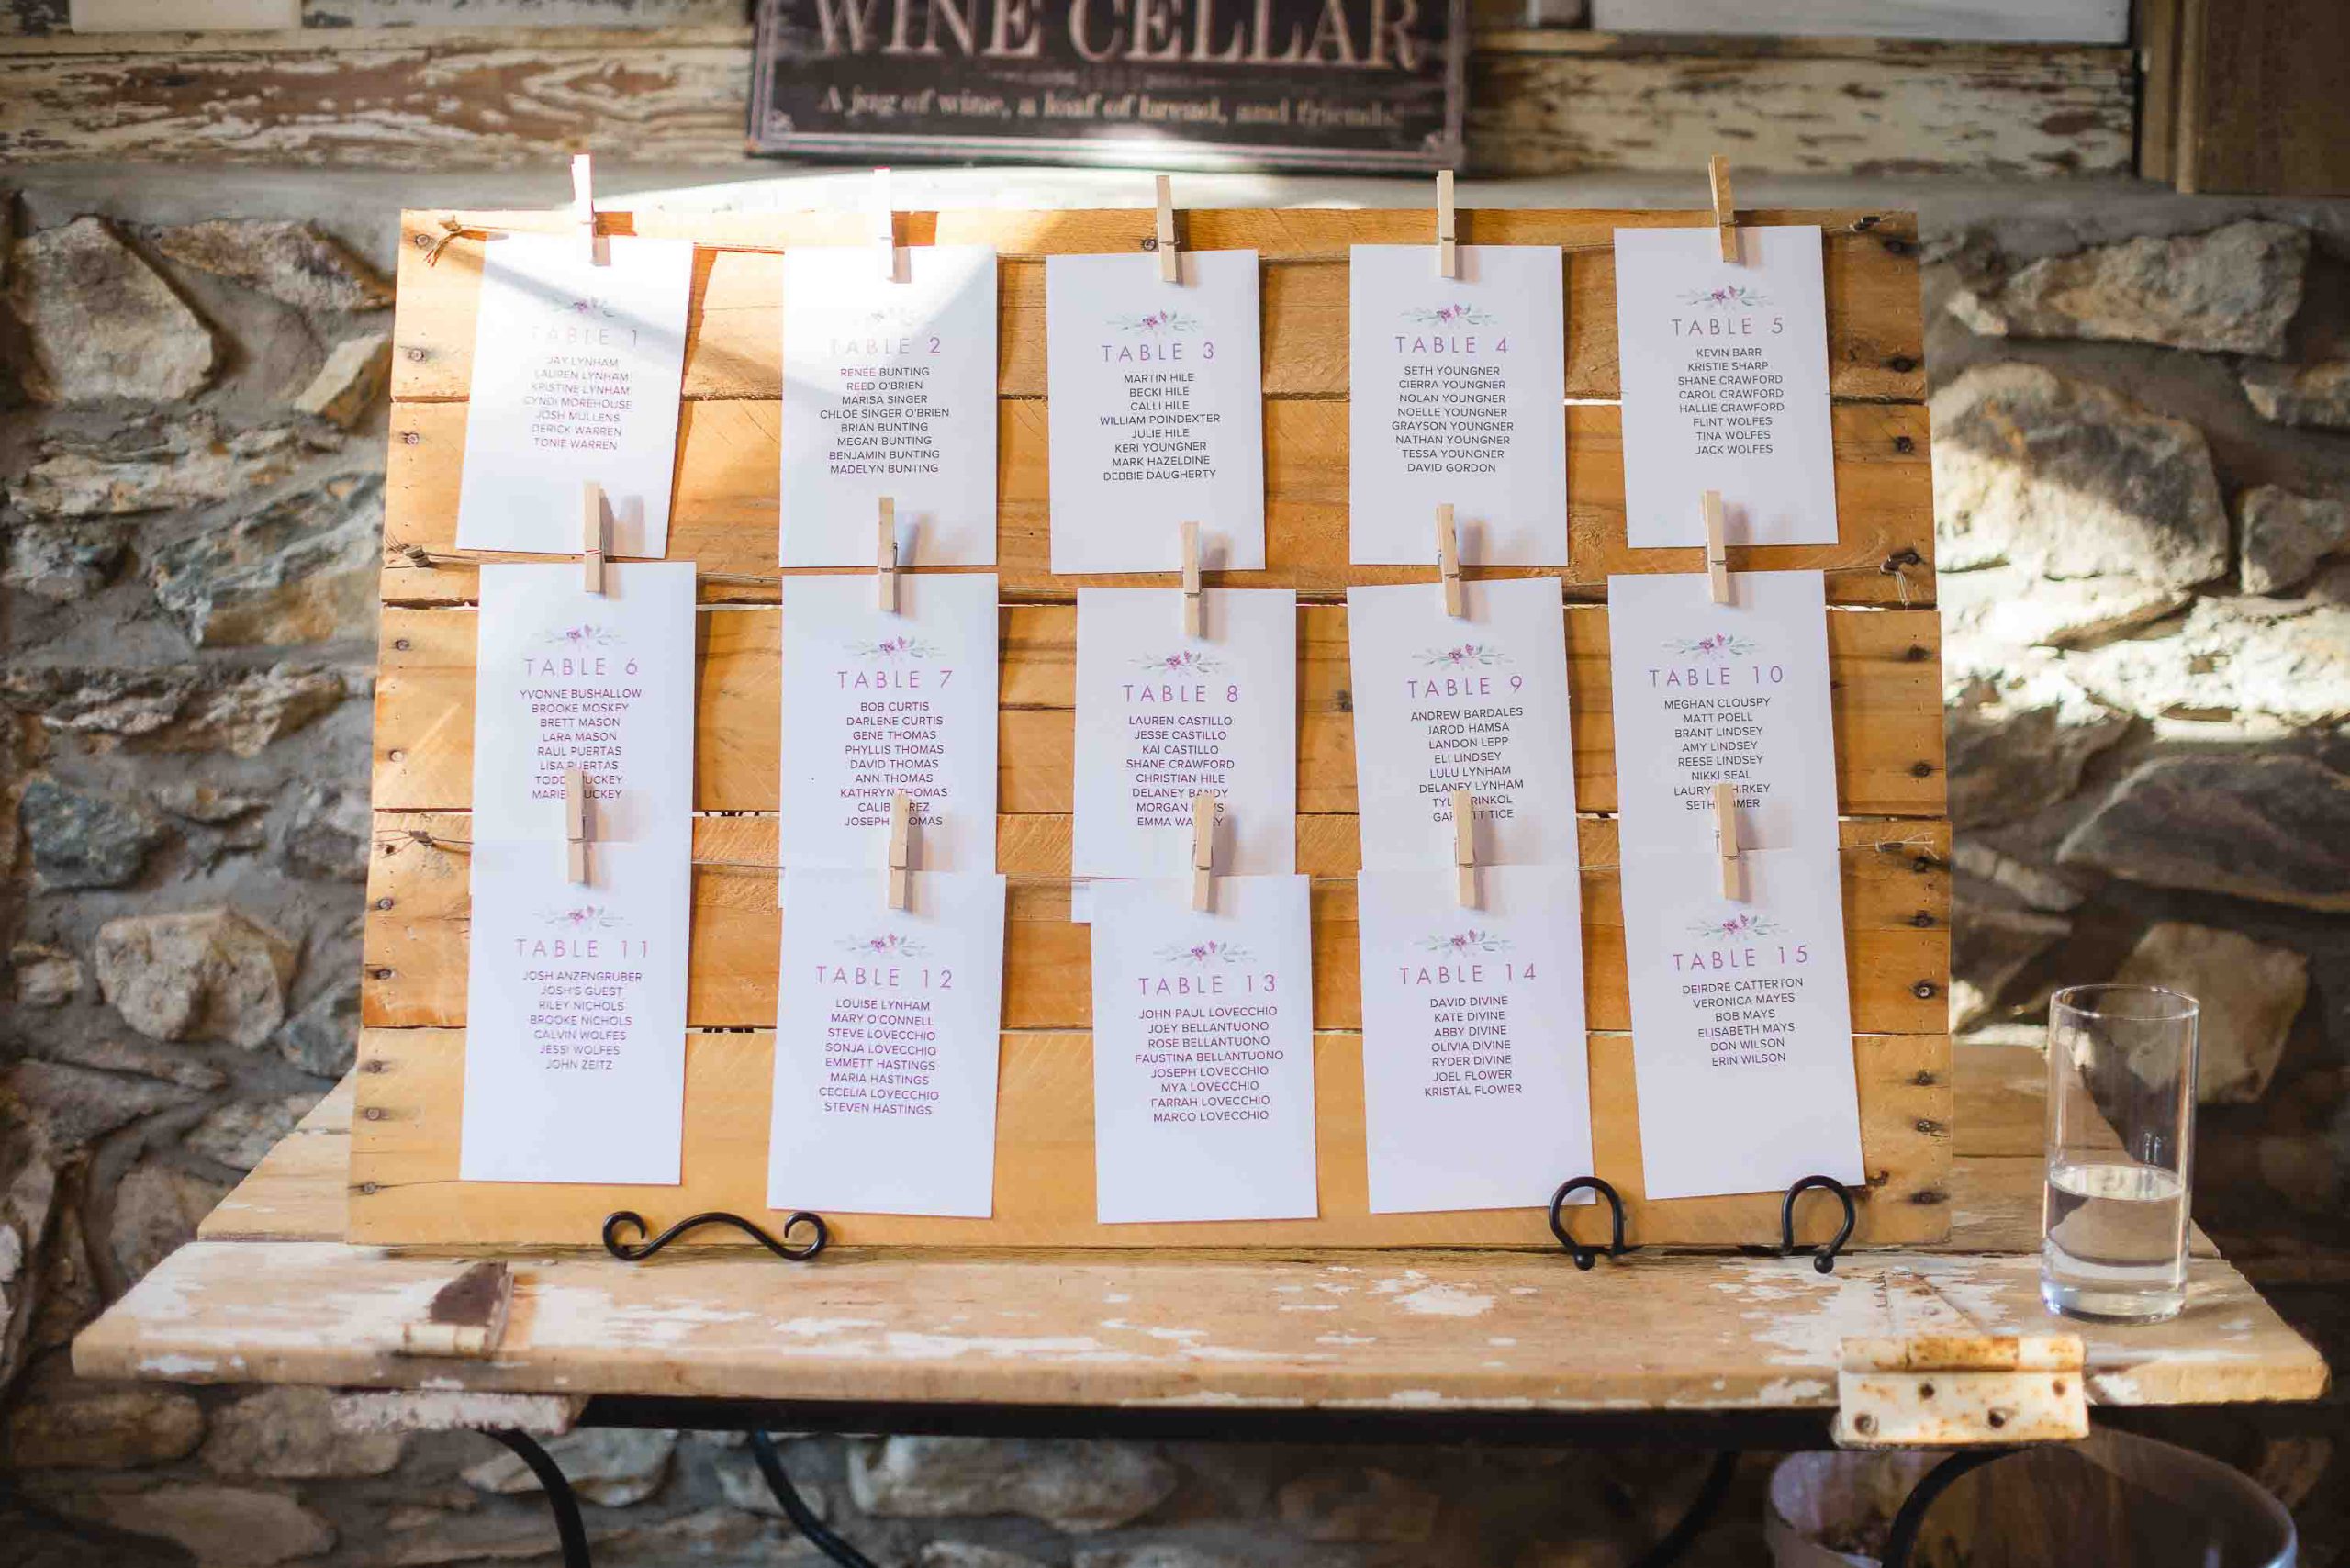 WINE CELLAR
A jug of wine, a loaf of bread, and friends!
TABLE 1
JAY LYNHAM
LAUREN LYNHAM
KRISTINE LYNHAM
CYNDI MOREHOUSE
JOSH MULLENS
DERICK WARREN
TONIE WARREN
TABLE 2
RENÉE BUNTING
REED O'BRIEN
MARISA SINGER
CHLOE SINGER O'BRIEN
BRIAN BUNTING
MEGAN BUNTING
BENJAMIN BUNTING
MADELYN BUNTING
TABLE 3
MARTIN HILE
BECKI HILE
CALLI HILE
WILLIAM POINDEXTER
JULIE HILE
KERI YOUNGNER
MARK HAZELDINE
DEBBIE DAUGHERTY
TABLE 4
SETH YOUNGNER
CIERRA YOUNGNER
NOLAN YOUNGNER
NOELLE YOUNGNER
GRAYSON YOUNGNER
NATHAN YOUNGNER
TESSA YOUNGNER
DAVID GORDON
TABLE 5
KEVIN BARR
KRISTIE SHARP
SHANE CRAWFORD
CAROL CRAWFORD
HALLIE CRAWFORD
FLINT WOLFES
TINA WOLFES
JACK WOLFES
TABLE 6
YVONNE BUSHALLOW
BROOKE MOSKEY
BRETT MASON
LARA MASON
RAUL PUERTAS
LISA PUERTAS
TODD
MARIE
TABLE 7
BOB CURTIS
DARLENE CURTIS
GENE THOMAS
PHYLLIS THOMAS
DAVID THOMAS
ANN THOMAS
KATHRYN THOMAS
CALIB
JOSEPH THOMAS
TABLE 8
LAUREN CASTILLO
JESSE CASTILLO
KAI CASTILLO
SHANE CRAWFORD
CHRISTIAN HILE
DELANEY BANDY
MORGAN
EMMA
TABLE 9
ANDREW BARDALES
JAROD HAMSA
LANDON LEPP
ELI LINDSEY
LULU LYNHAM
DELANEY LYNHAM
TYLER
GARRETT TICE
TABLE 10
MEGHAN CLOUSPY
MATT POELL
BRANT LINDSEY
AMY LINDSEY
REESE LINDSEY
NIKKI SEAL
SETH
TABLE 11
JOSH ANZENGRUBER
JOSH'S GUEST
RILEY NICHOLS
BROOKE NICHOLS
CALVIN WOLFES
JESSI WOLFES
JOHN ZEITZ
TABLE 12
LOUISE LYNHAM
MARY O'CONNELL
STEVE LOVECCHIO
SONJA LOVECCHIO
EMMETT HASTINGS
MARIA HASTINGS
CECELIA LOVECCHIO
STEVEN HASTINGS
TABLE 13
JOHN PAUL LOVECCHIO
JOEY BELLANTUONO
ROSE BELLANTUONO
FAUSTINA BELLANTUONO
JOSEPH LOVECCHIO
MYA LOVECCHIO
FARRAH LOVECCHIO
MARCO LOVECCHIO
TABLE 14
DAVID DIVINE
KATE DIVINE
ABBY DIVINE
OLIVIA DIVINE
RYDER DIVINE
JOEL FLOWER
KRISTAL FLOWER
TABLE 15
DEIRDRE CATTERTON
VERONICA MAYES
BOB MAYS
ELISABETH MAYS
DON WILSON
ERIN WILSON